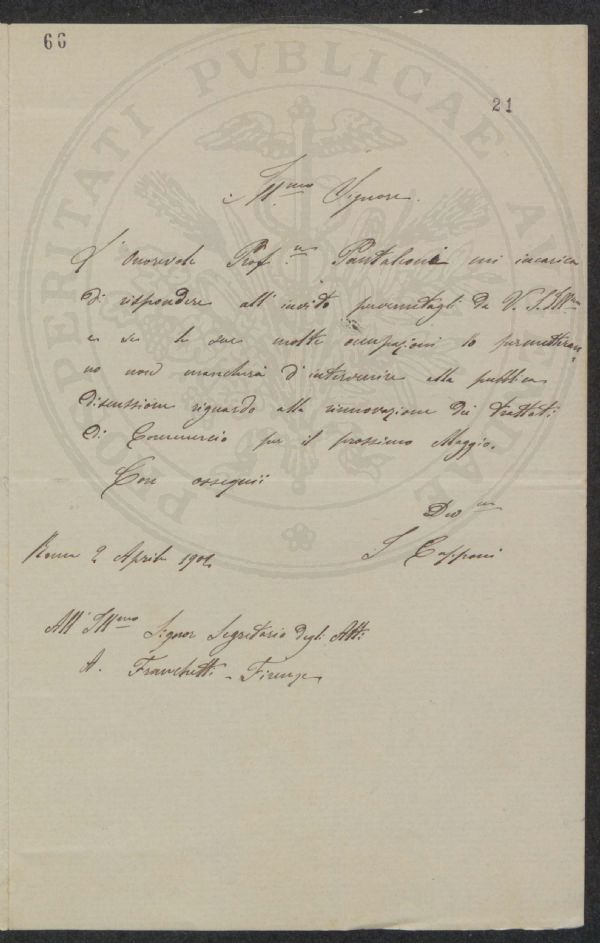 66
21
Ill.mo Signore.
L'Onorevole Prof.re Pantaleoni mi incarica
di rispondere all'invito pervenutogli da V. S. Ill.ma
e se le sue molte occupazioni lo permetteran
no non mancherà d'intervenire alla pubblica
discussione riguardo alla rinnovazione dei trattati
di Commercio per il prossimo Maggio.
Con ossequii
Dev.mo
Roma 2 Aprile 1902
Capponi
All'Ill.mo Signor Segretario degli Atti
A. Franchetti - Firenze
PROSPERITATI PVBLICAE AVGENDAE